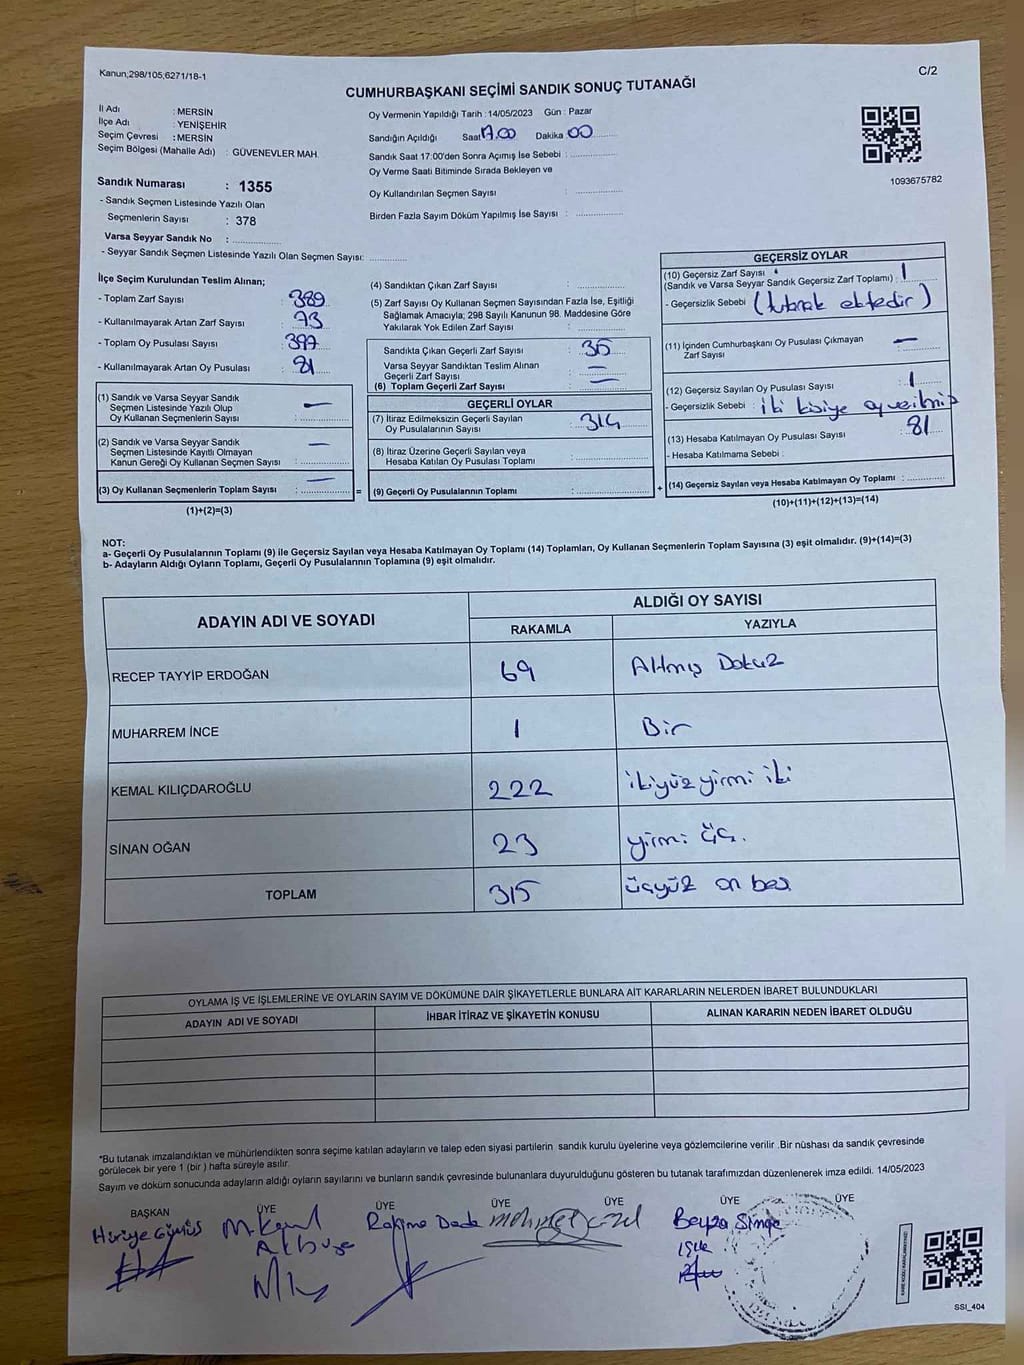 Kanun,298/105,6271/18-1
C/2
CUMHURBAŞKANI SEÇİMİ SANDIK SONUÇ TUTANAĞI
İl Adı : MERSİN
İlçe Adı : YENİŞEHİR
Seçim Çevresi : MERSİN
Seçim Bölgesi (Mahalle Adı) : GÜVENEVLER MAH.
Sandık Numarası : 1355
- Sandık Seçmen Listesinde Yazılı Olan
Seçmenlerin Sayısı : 378
Varsa Seyyar Sandık No :
- Seyyar Sandık Seçmen Listesinde Yazılı Olan Seçmen Sayısı:
Oy Vermenin Yapıldığı Tarih : 14/05/2023 Gün : Pazar
Sandığın Açıldığı Saat 17.00 Dakika 00
Sandık Saat 17:00'den Sonra Açımış İse Sebebi :
Oy Verme Saati Bitiminde Sırada Bekleyen ve
Oy Kullandırılan Seçmen Sayısı :
Birden Fazla Sayım Döküm Yapılmış İse Sayısı :
1093675782
İlçe Seçim Kurulundan Teslim Alınan;
- Toplam Zarf Sayısı : 389
- Kullanılmayarak Artan Zarf Sayısı : 73
- Toplam Oy Pusulası Sayısı : 397
- Kullanılmayarak Artan Oy Pusulası : 81
(1) Sandık ve Varsa Seyyar Sandık
Seçmen Listesinde Yazılı Olup
Oy Kullanan Seçmenlerin Sayısı : —
(2) Sandık ve Varsa Seyyar Sandık
Seçmen Listesinde Kayıtlı Olmayan
Kanun Gereği Oy Kullanan Seçmen Sayısı : —
(3) Oy Kullanan Seçmenlerin Toplam Sayısı : — =
(1)+(2)=(3)
(4) Sandıktan Çıkan Zarf Sayısı :
(5) Zarf Sayısı Oy Kullanan Seçmen Sayısından Fazla İse, Eşitliği
Sağlamak Amacıyla; 298 Sayılı Kanunun 98. Maddesine Göre
Yakılarak Yok Edilen Zarf Sayısı :
Sandıkta Çıkan Geçerli Zarf Sayısı : 315
Varsa Seyyar Sandıktan Teslim Alınan
Geçerli Zarf Sayısı : —
(6) Toplam Geçerli Zarf Sayısı : —
GEÇERLİ OYLAR
(7) İtiraz Edilmeksizin Geçerli Sayılan
Oy Pusulalarının Sayısı : 314
(8) İtiraz Üzerine Geçerli Sayılan veya
Hesaba Katılan Oy Pusulası Toplamı :
(9) Geçerli Oy Pusulalarının Toplamı : +
GEÇERSİZ OYLAR
(10) Geçersiz Zarf Sayısı
(Sandık ve Varsa Seyyar Sandık Geçersiz Zarf Toplamı) : 1
- Geçersizlik Sebebi : (tutanak ektedir)
(11) İçinden Cumhurbaşkanı Oy Pusulası Çıkmayan
Zarf Sayısı : —
(12) Geçersiz Sayılan Oy Pusulası Sayısı : 1
- Geçersizlik Sebebi : iki kişiye oy verilmiş
(13) Hesaba Katılmayan Oy Pusulası Sayısı : 81
- Hesaba Katılmama Sebebi :
(14) Geçersiz Sayılan veya Hesaba Katılmayan Oy Toplamı :
(10)+(11)+(12)+(13)=(14)
NOT:
a- Geçerli Oy Pusulalarının Toplamı (9) ile Geçersiz Sayılan veya Hesaba Katılmayan Oy Toplamı (14) Toplamları, Oy Kullanan Seçmenlerin Toplam Sayısına (3) eşit olmalıdır. (9)+(14)=(3)
b- Adayların Aldığı Oyların Toplamı, Geçerli Oy Pusulalarının Toplamına (9) eşit olmalıdır.
ADAYIN ADI VE SOYADI
ALDIĞI OY SAYISI
RAKAMLA YAZIYLA
RECEP TAYYİP ERDOĞAN 69 Altmış Dokuz
MUHARREM İNCE 1 Bir
KEMAL KILIÇDAROĞLU 222 ikiyüz yirmi iki
SİNAN OĞAN 23 yirmi üç.
TOPLAM 315 üçyüz on beş
OYLAMA İŞ VE İŞLEMLERİNE VE OYLARIN SAYIM VE DÖKÜMÜNE DAİR ŞİKAYETLERLE BUNLARA AİT KARARLARIN NELERDEN İBARET BULUNDUKLARI
ADAYIN ADI VE SOYADI İHBAR İTİRAZ VE ŞİKAYETİN KONUSU ALINAN KARARIN NEDEN İBARET OLDUĞU
*Bu tutanak imzalandıktan ve mühürlendikten sonra seçime katılan adayların ve talep eden siyasi partilerin sandık kurulu üyelerine veya gözlemcilerine verilir .Bir nüshası da sandık çevresinde
görülecek bir yere 1 (bir ) hafta süreyle asılır.
Sayım ve döküm sonucunda adayların aldığı oyların sayılarını ve bunların sandık çevresinde bulunanlara duyurulduğunu gösteren bu tutanak tarafımızdan düzenlenerek imza edildi. 14/05/2023
BAŞKAN ÜYE ÜYE ÜYE ÜYE ÜYE ÜYE
Huriye Gümüş M. Kemal Rakime Dede Mehmet Güzel Beyza Simge
SSI_404